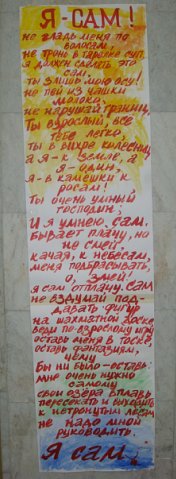 Я - САМ!
не гладь меня по
волосам,
не тронь в тарелке суп.
я должен сделать это
сам,
ты злишь мою осу!
не пей из чашки
молоко.
не нарушай границ,
Ты взрослый, всё
тебе легко,
ты в вихре колесниц,
а я - к земле, а
я - один,
я - в камешки к
росам!
Ты очень умный
господин,
И я умею, сам.
Бывает плачу, но
не смей,
качая, к небесам,
меня подбрасывать,
змей!
я сам отплачу. сам
не вздумай под-
давать фигур
на шахматной доске
веди по-взрослому игру
оставь меня в тоске.
оставь фантазиям,
чему
бы ни было - оставь:
мне очень нужно
самому
свои озёра вплавь
пересекать и выходить
к нетронутым лесам
не надо мной
руководить.
Я сам